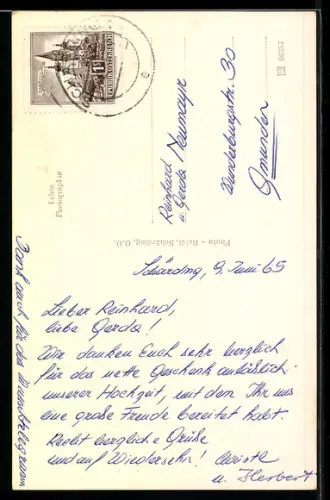 Reinhard
u. Gerda Neumayr
30
Gmunden
Echte
Photographie
Photo - Baldi, Schärding, O.Ö.
Schärding, 9. Juni 65
Lieber Reinhard,
liebe Gerda!
Wir danken Euch sehr herzlich
für das nette Geschenk anläßlich
unserer Hochzeit, mit dem Ihr uns
eine große Freude bereitet habt.
Recht herzliche Grüße
und auf Wiedersehn! Christl
u. Herbert
Dank auch für das Wunschtelegramm